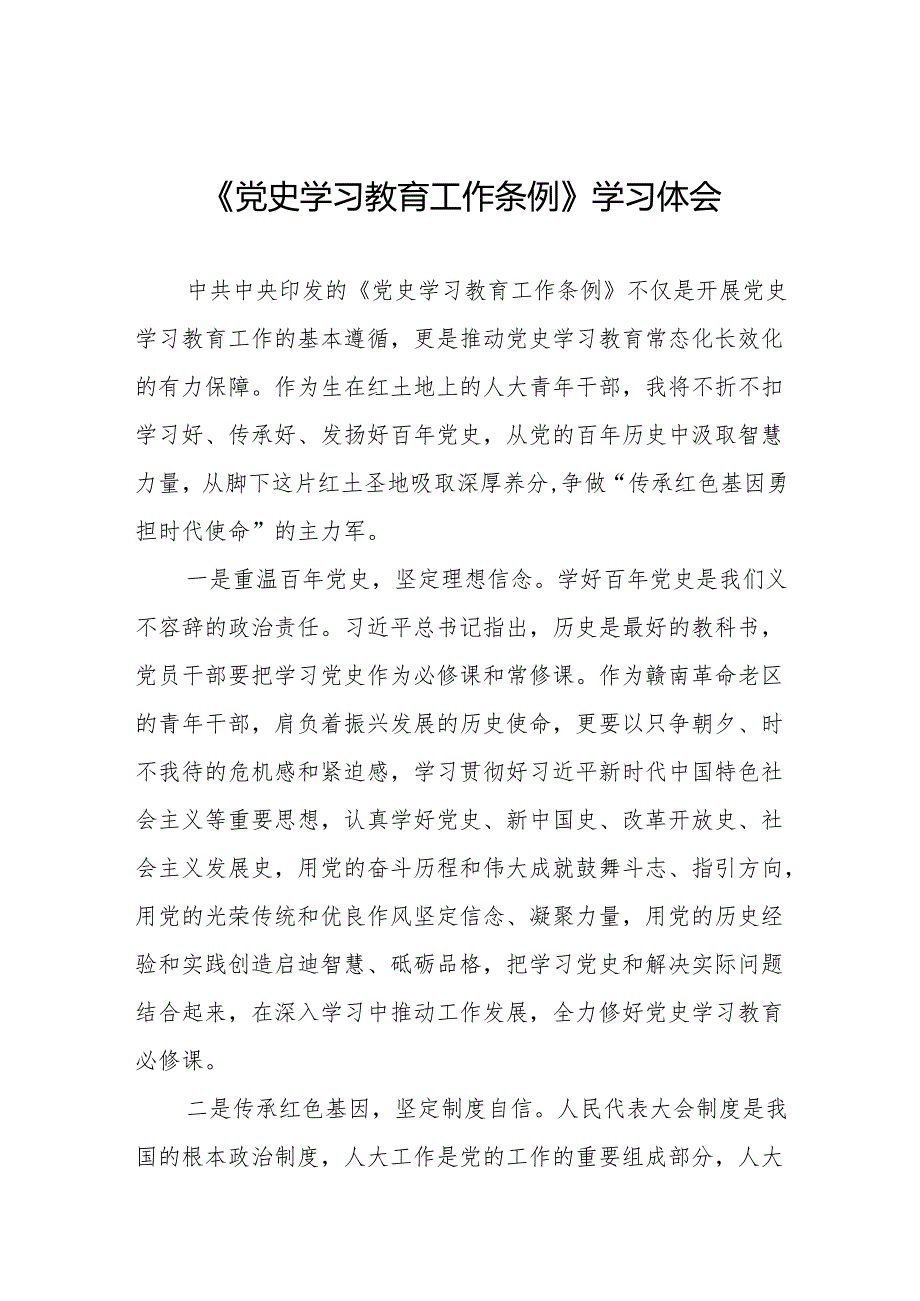 《党史学习教育工作条例》学习体会
中共中央印发的《党史学习教育工作条例》不仅是开展党史
学习教育工作的基本遵循，更是推动党史学习教育常态化长效化
的有力保障。作为生在红土地上的人大青年干部，我将不折不扣
学习好、传承好、发扬好百年党史，从党的百年历史中汲取智慧
力量，从脚下这片红土圣地吸取深厚养分,争做“传承红色基因勇
担时代使命”的主力军。
一是重温百年党史，坚定理想信念。学好百年党史是我们义
不容辞的政治责任。习近平总书记指出，历史是最好的教科书，
党员干部要把学习党史作为必修课和常修课。作为赣南革命老区
的青年干部，肩负着振兴发展的历史使命，更要以只争朝夕、时
不我待的危机感和紧迫感，学习贯彻好习近平新时代中国特色社
会主义等重要思想，认真学好党史、新中国史、改革开放史、社
会主义发展史，用党的奋斗历程和伟大成就鼓舞斗志、指引方向，
用党的光荣传统和优良作风坚定信念、凝聚力量，用党的历史经
验和实践创造启迪智慧、砥砺品格，把学习党史和解决实际问题
结合起来，在深入学习中推动工作发展，全力修好党史学习教育
必修课。
二是传承红色基因，坚定制度自信。人民代表大会制度是我
国的根本政治制度，人大工作是党的工作的重要组成部分，人大